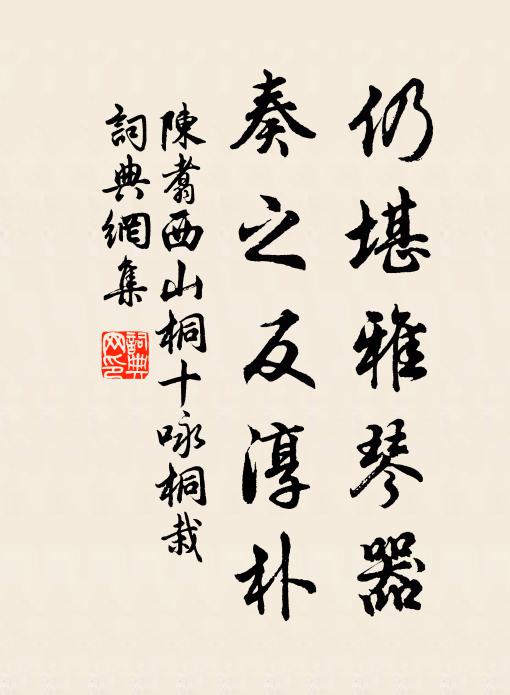 仍堪雅琴器
奏之反淳朴
陳翥西山桐十咏桐栽
詞典網集
詞典网印